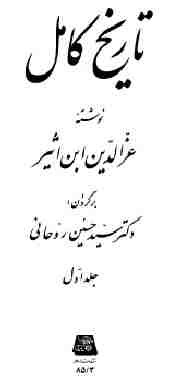 تاریخ کامل
نوشتهٔ
عزالدین ابن اثیر
برگردان:
دکتر سید حسین روحانی
جلد اول
۸۵/۲